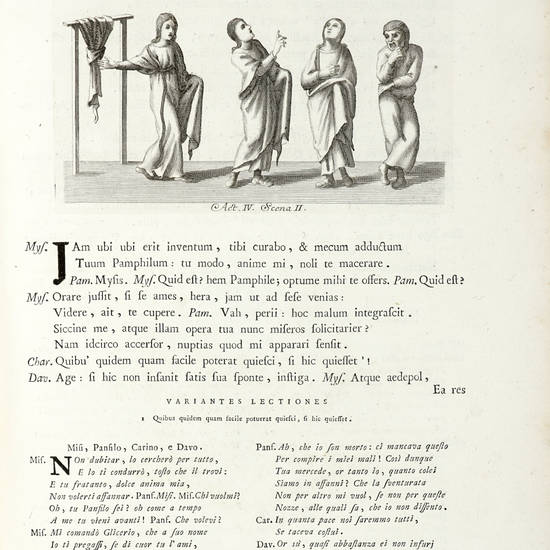 Act. IV. Scena II.
Mys. JAm ubi ubi erit inventum, tibi curabo, & mecum adductum
Tuum Pamphilum: tu modo, anime mi, noli te macerare.
Pam. Mysis. Mys. Quid est? hem Pamphile; optume mihi te offers. Pam. Quid est?
Mys. Orare jussit, si se ames, hera, jam ut ad sese venias:
Videre, ait, te cupere. Pam. Vah, perii: hoc malum integrascit.
Siccine me, atque illam opera tua nunc miseros solicitarier?
Nam idcirco accersor, nuptias quod mi apparari sensit.
Char. Quibu' quidem quam facile poterat quiesci, si hic quiesset'!
Dav. Age: si hic non insanit satis sua sponte, instiga. Mys. Atque aedepol,
Ea res
VARIANTES LECTIONES
1 Quibus quidem quam facile potuerat quiesci, si hic quiesset.
Misi, Panfilo, Carino, e Davo.
Mis. NOn dubitar, lo cercherò per tutto,
E lo ti condurrò, tosto che il trovi:
E tu fratanto, dolce anima mia,
Non volerti affannar. Panf. Misi. Mis. Chi vuolmi?
Oh, tu Panfilo sei? oh come a tempo
A me tu vieni avanti! Panf. Che volevi?
Mis. Mi comandò Glicerio, che a suo nome
Io ti pregassi, se di cuor tu l'ami,
Panf. Ah, che io son morto: ci mancava questo
Per compire i miei mali! Così dunque
Tua mercede, or tanto io, quanto colei
Siamo in affanni? Che la sventurata
Non per altro mi vuol, se non per queste
Nozze, alle quali sa, che io non dissento.
Car. In quanta pace noi saremmo tutti,
Se taceva costui.
Dav. Or sù, quasi abbastanza ei non infuri